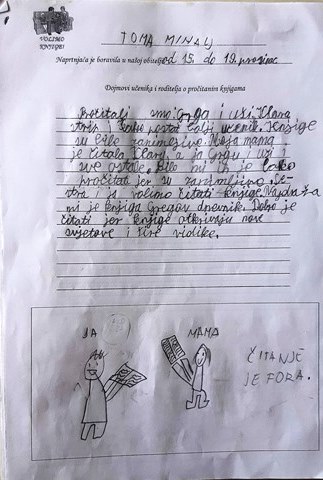 VOLIMO
KNJIGE!
TOMA MINALJ
Naprtnjača je boravila u našoj obitelji od 15. do 19. prosinc
Dojmovi učenika i roditelja o pročitanim knjigama
Pročitali smo Grga i uši, Klara
strip i kako postat bolji učenik. Knjige
su bile zanimljive. Moja mama
je čitala Klaru, a ja Grgu i uši i
sve ostale. Bilo mi ih je lako
pročitat jer su zanimljive.
i ja volimo čitati knjige. Najdraža
mi je knjiga Gregov dnevnik. Dobro je
čitati jer knjige otkrivaju nove
svjetove i šire vidike.
JA
MAMA
ČITANJE
JE FORA.